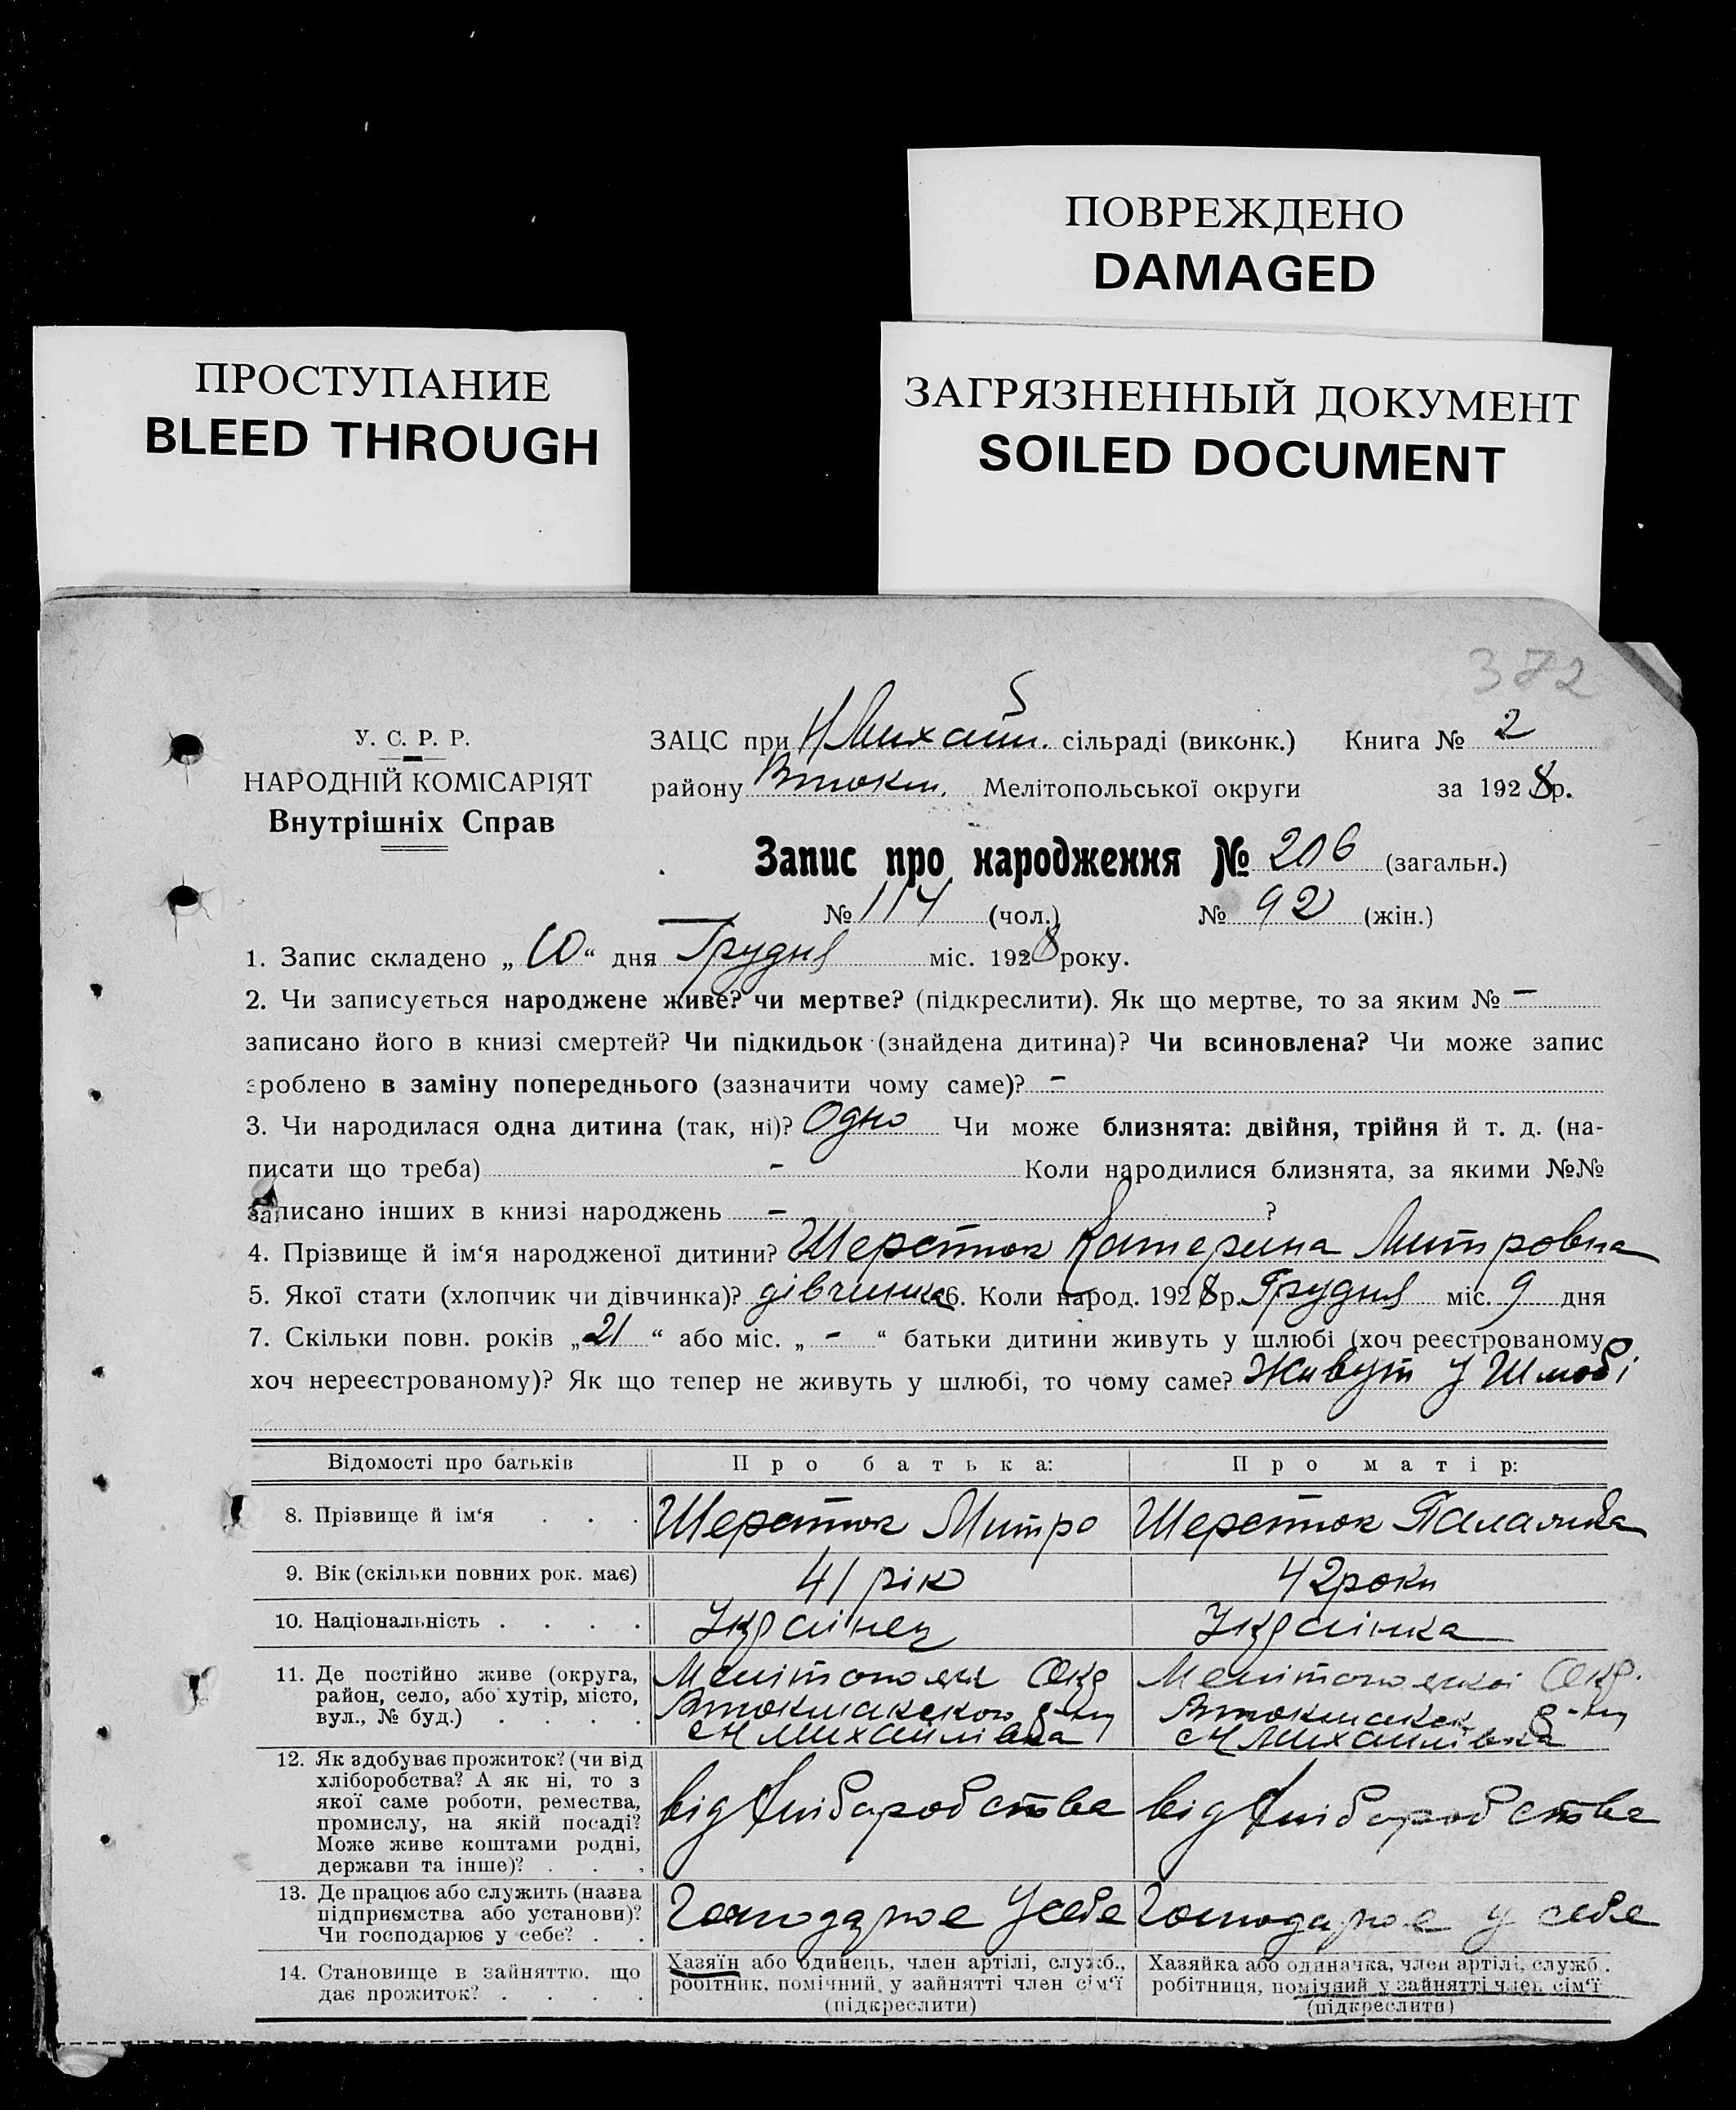 ПОВРЕЖДЕНО
DAMAGED
ПРОСТУПАНИЕ
BLEED THROUGH
ЗАГРЯЗНЕННЫЙ ДОКУМЕНТ
SOILED DOCUMENT
382
У. С. Р. Р.
НАРОДНІЙ КОМІСАРІЯТ
Внутрішніх Справ
ЗАЦС при Н Михайл. сільраді (виконк.) Книга № 2
району Втокм. Мелітопольської округи за 1928р.
Запис про народження № 206 (загальн.)
№ 114 (чол.) № 92 (жін.)
1. Запис складено „10“ дня Грудня міс. 1928 року.
2. Чи записується народжене живе? чи мертве? (підкреслити). Як що мертве, то за яким № –
записано його в книзі смертей? Чи підкидьок (знайдена дитина)? Чи всиновлена? Чи може запис
зроблено в заміну попереднього (зазначити чому саме)? –
3. Чи народилася одна дитина (так, ні)? Одно Чи може близнята: двійня, трійня й т. д. (на-
писати що треба) – Коли народилися близнята, за якими №№
записано інших в книзі народжень – ?
4. Прізвище й ім‘я народженої дитини? Шерстюк Катерина Митровна
5. Якої стати (хлопчик чи дівчинка)? дівчинка 6. Коли народ. 1928р. Грудня міс. 9 дня
7. Скільки повн. років „21“ або міс. „-“ батьки дитини живуть у шлюбі (хоч реєстрованому
хоч нереєстрованому)? Як що тепер не живуть у шлюбі, то чому саме? Живут у Шлюбі
Відомості про батьків Про батька: Про матір:
8. Прізвище й ім‘я . . . Шерстюк Митро Шерстюк Палажка
9. Вік (скільки повних рок. має) 41 рік 42 роки
10. Національність . . . . Українец Українка
11. Де постійно живе (округа,
район, село, або хутір, місто,
вул., № буд.) . . . .
Мелітопольск Окр
Втокмакского р-ну
с Н Михайлівка
Мелітопольскої Окр.
Втокмакск р-ну
с Н Михайлівка
12. Як здобуває прожиток? (чи від
хліборобства? А як ні, то з
якої саме роботи, ремества,
промислу, на якій посаді?
Може живе коштами родні,
держави та інше)? . . .
від хліборобства
від хліборобства
13. Де працює або служить (назва
підприємства або установи)?
Чи господарює у себе? . .
Господарює у себе
Господарює у себе
14. Становище в зайняттю, що
дає прожиток? . . . .
Хазяїн або одинець, член артілі, служб.,
робітник, помічний, у зайнятті член сім‘ї
(підкреслити)
Хазяйка або одиначка, член артілі, служб.
робітниця, помічний у зайнятті член сім‘ї
(підкреслити)